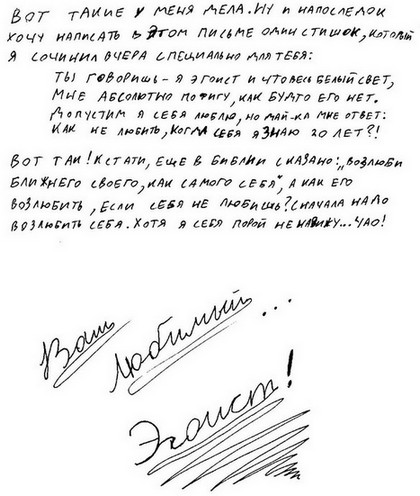 ВОТ ТАКИЕ У МЕНЯ ДЕЛА. НУ И НАПОСЛЕДОК
ХОЧУ НАПИСАТЬ В ЭТОМ ПИСЬМЕ ОДИН СТИШОК, КОТОРЫЙ
Я СОЧИНИЛ ВЧЕРА СПЕЦИАЛЬНО ДЛЯ ТЕБЯ:
ТЫ ГОВОРИШЬ - Я ЭГОИСТ И ЧТО ВЕСЬ БЕЛЫЙ СВЕТ,
МНЕ АБСОЛЮТНО ПОФИГУ, КАК БУДТО ЕГО НЕТ.
ДОПУСТИМ Я СЕБЯ ЛЮБЛЮ, НО ДАЙ-КА МНЕ ОТВЕТ:
КАК НЕ ЛЮБИТЬ, КОГДА СЕБЯ Я ЗНАЮ 20 ЛЕТ?!
ВОТ ТАК! КСТАТИ, ЕЩЕ В БИБЛИИ СКАЗАНО: „ВОЗЛЮБИ
БЛИЖНЕГО СВОЕГО, КАК САМОГО СЕБЯ", А КАК ЕГО
ВОЗЛЮБИТЬ, ЕСЛИ СЕБЯ НЕ ЛЮБИШЬ? СНАЧАЛА НАДО
ВОЗЛЮБИТЬ СЕБЯ. ХОТЯ Я СЕБЯ ПОРОЙ НЕНАВИЖУ... ЧАО!
Ваш Любимый...
Эгоист!